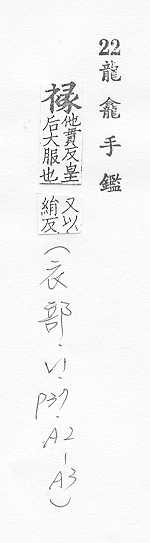 22龍龕手鑑
褖
他貫反皇
后大服也
又以
絹反
(衣部.V1.P37.A2-A3)